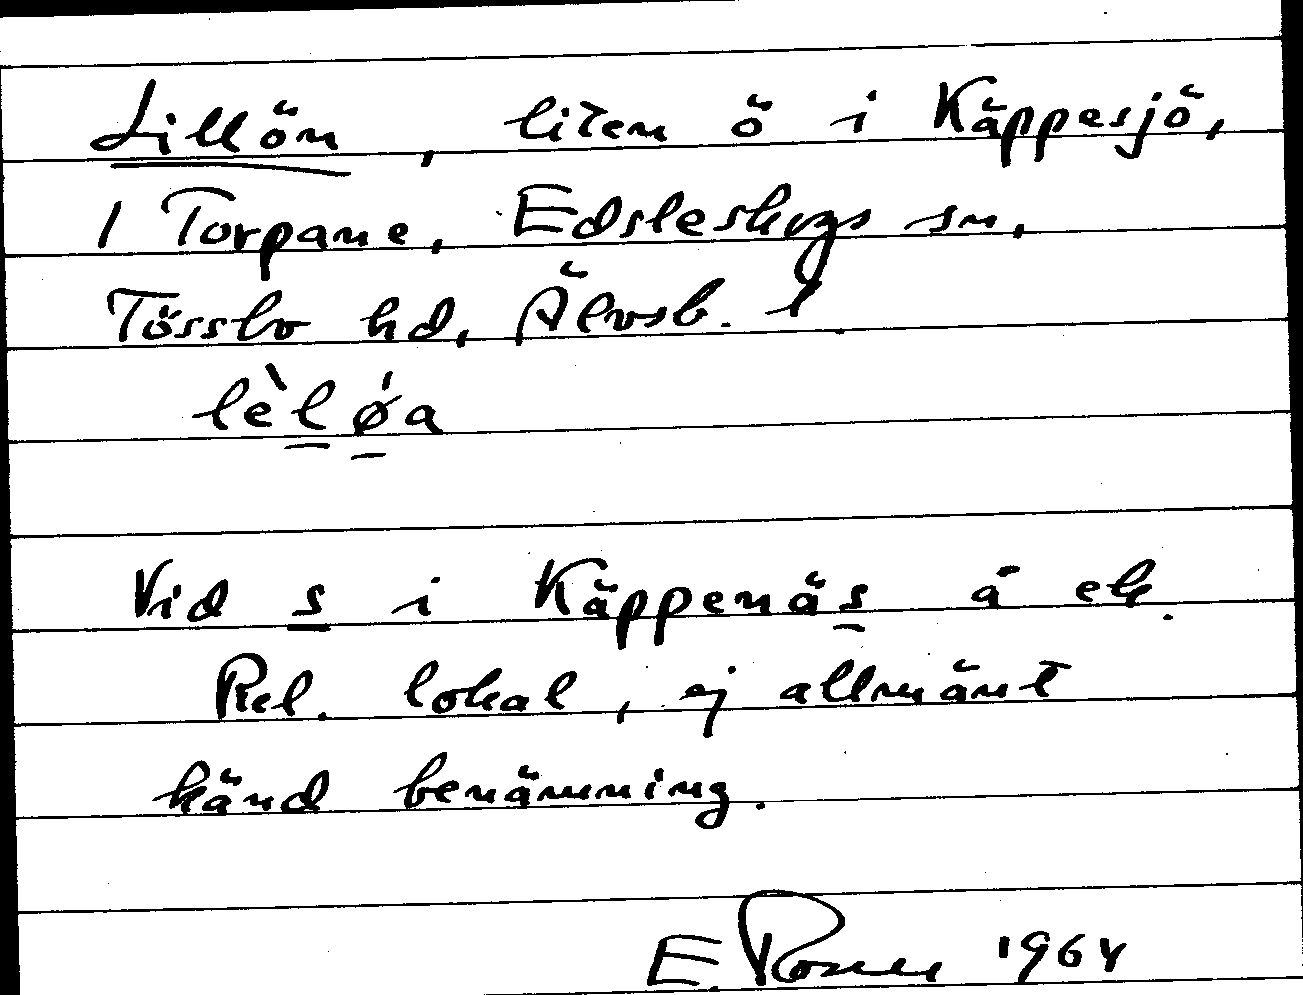 Lillön, liten ö i Käppesjö,
1 Torpane, Edsleskogs sn,
Tössbo hd, Älvsb. l.
lèlǿa
Vid s i Käppenäs å ek.
Rel. lokal, ej allmänt
känd benämning.
E. Rosell 1964